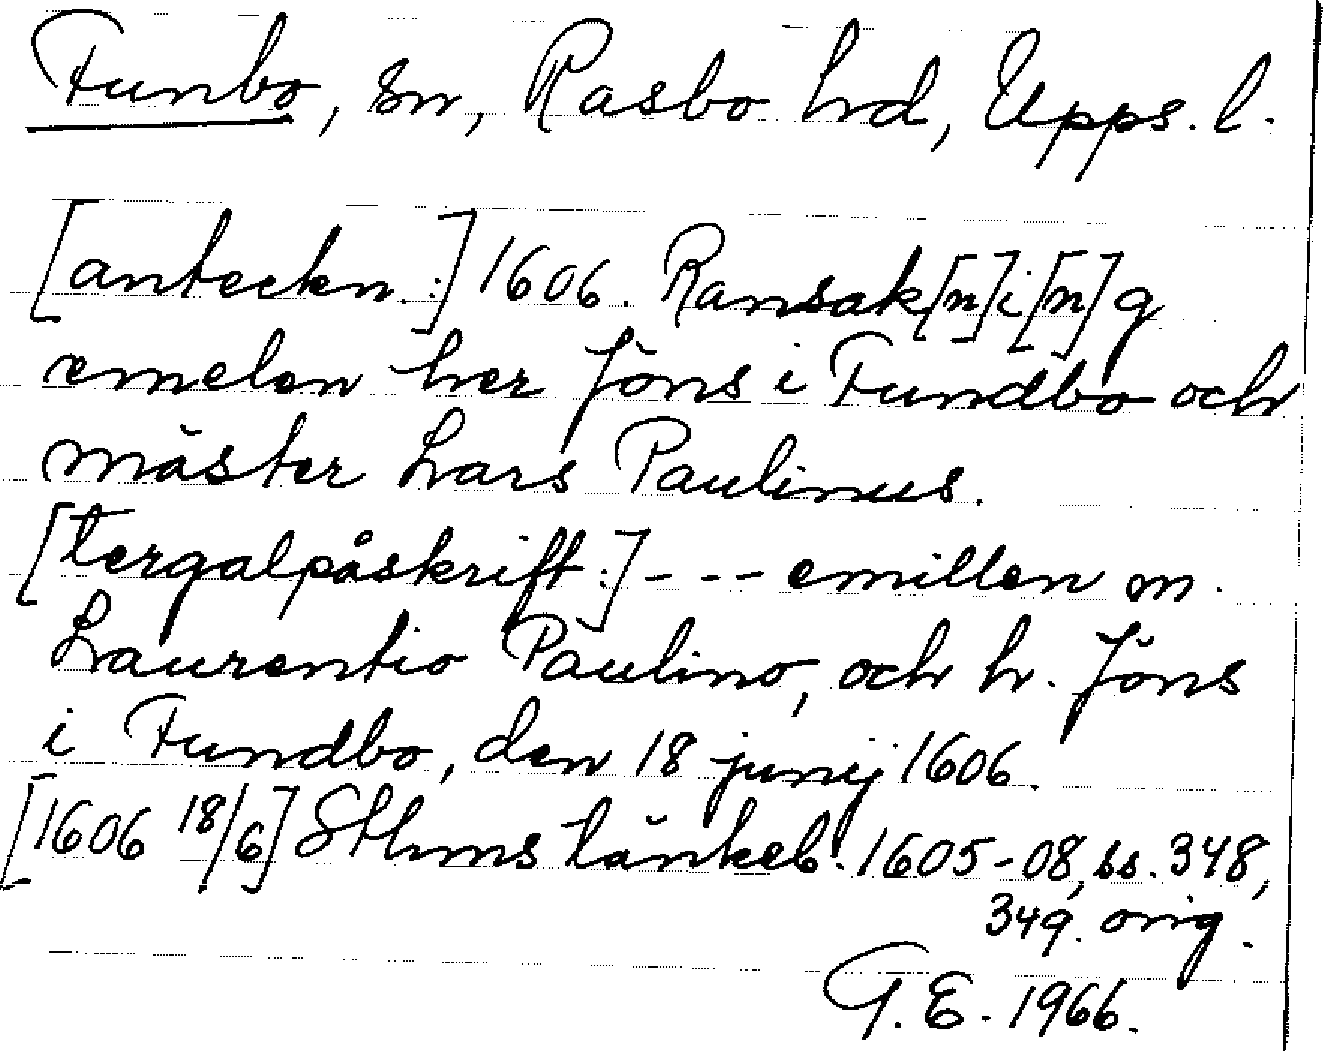 Funbo, sn, Rasbo hrd, Upps. l.
[anteckn.:] 1606. Ransak[n]i[n]g
emelen her Jöns i Fundbo och
mäster Lars Paulinus.
[tergalpåskrift:] - - - emillen m.
Laurentio Paulino, och h. Jöns
i Fundbo, den 18 junij 1606.
[1606 18/6] Sthms tänkeb. 1605-08, ss. 348,
349. orig.
G. E. 1966.